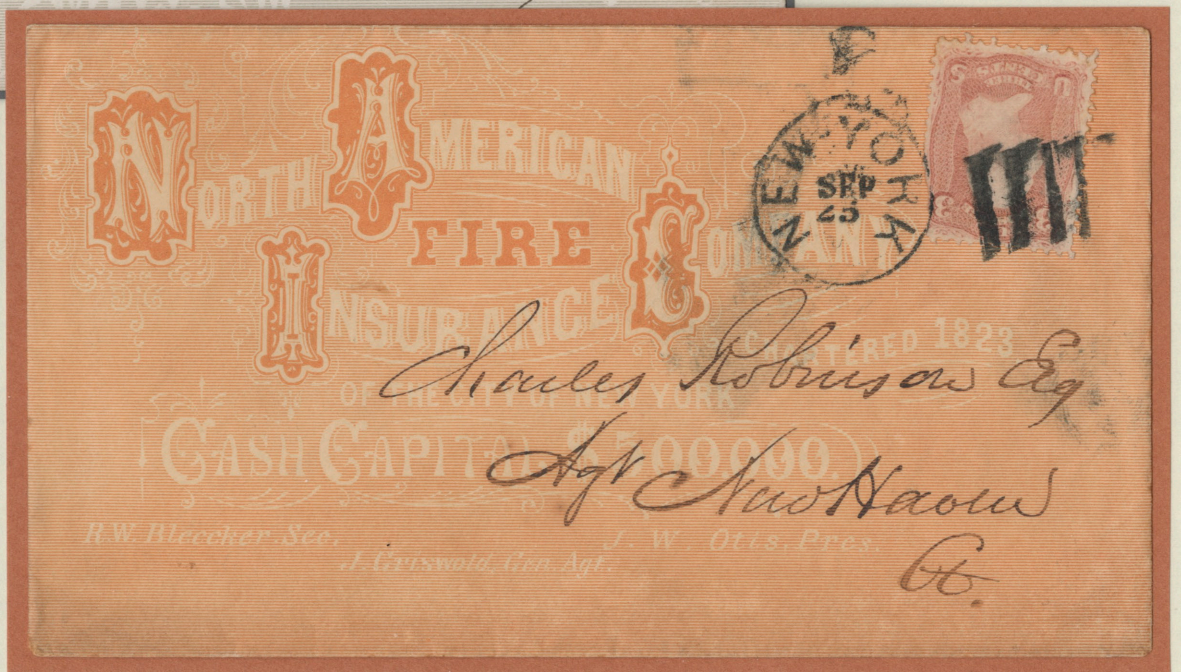 NORTH AMERICAN
FIRE
INSURANCE COMPANY
CHARTERED 1823
OF THE CITY OF NEW YORK
CASH CAPITAL $500,000.
R.W. Bleecker, Sec.
J. W. Otis, Pres.
J. Griswold, Gen. Agt.
NEW-YORK
SEP
25
U
3
3
Charles Robinson Esq
Agt New Haven
Ct.